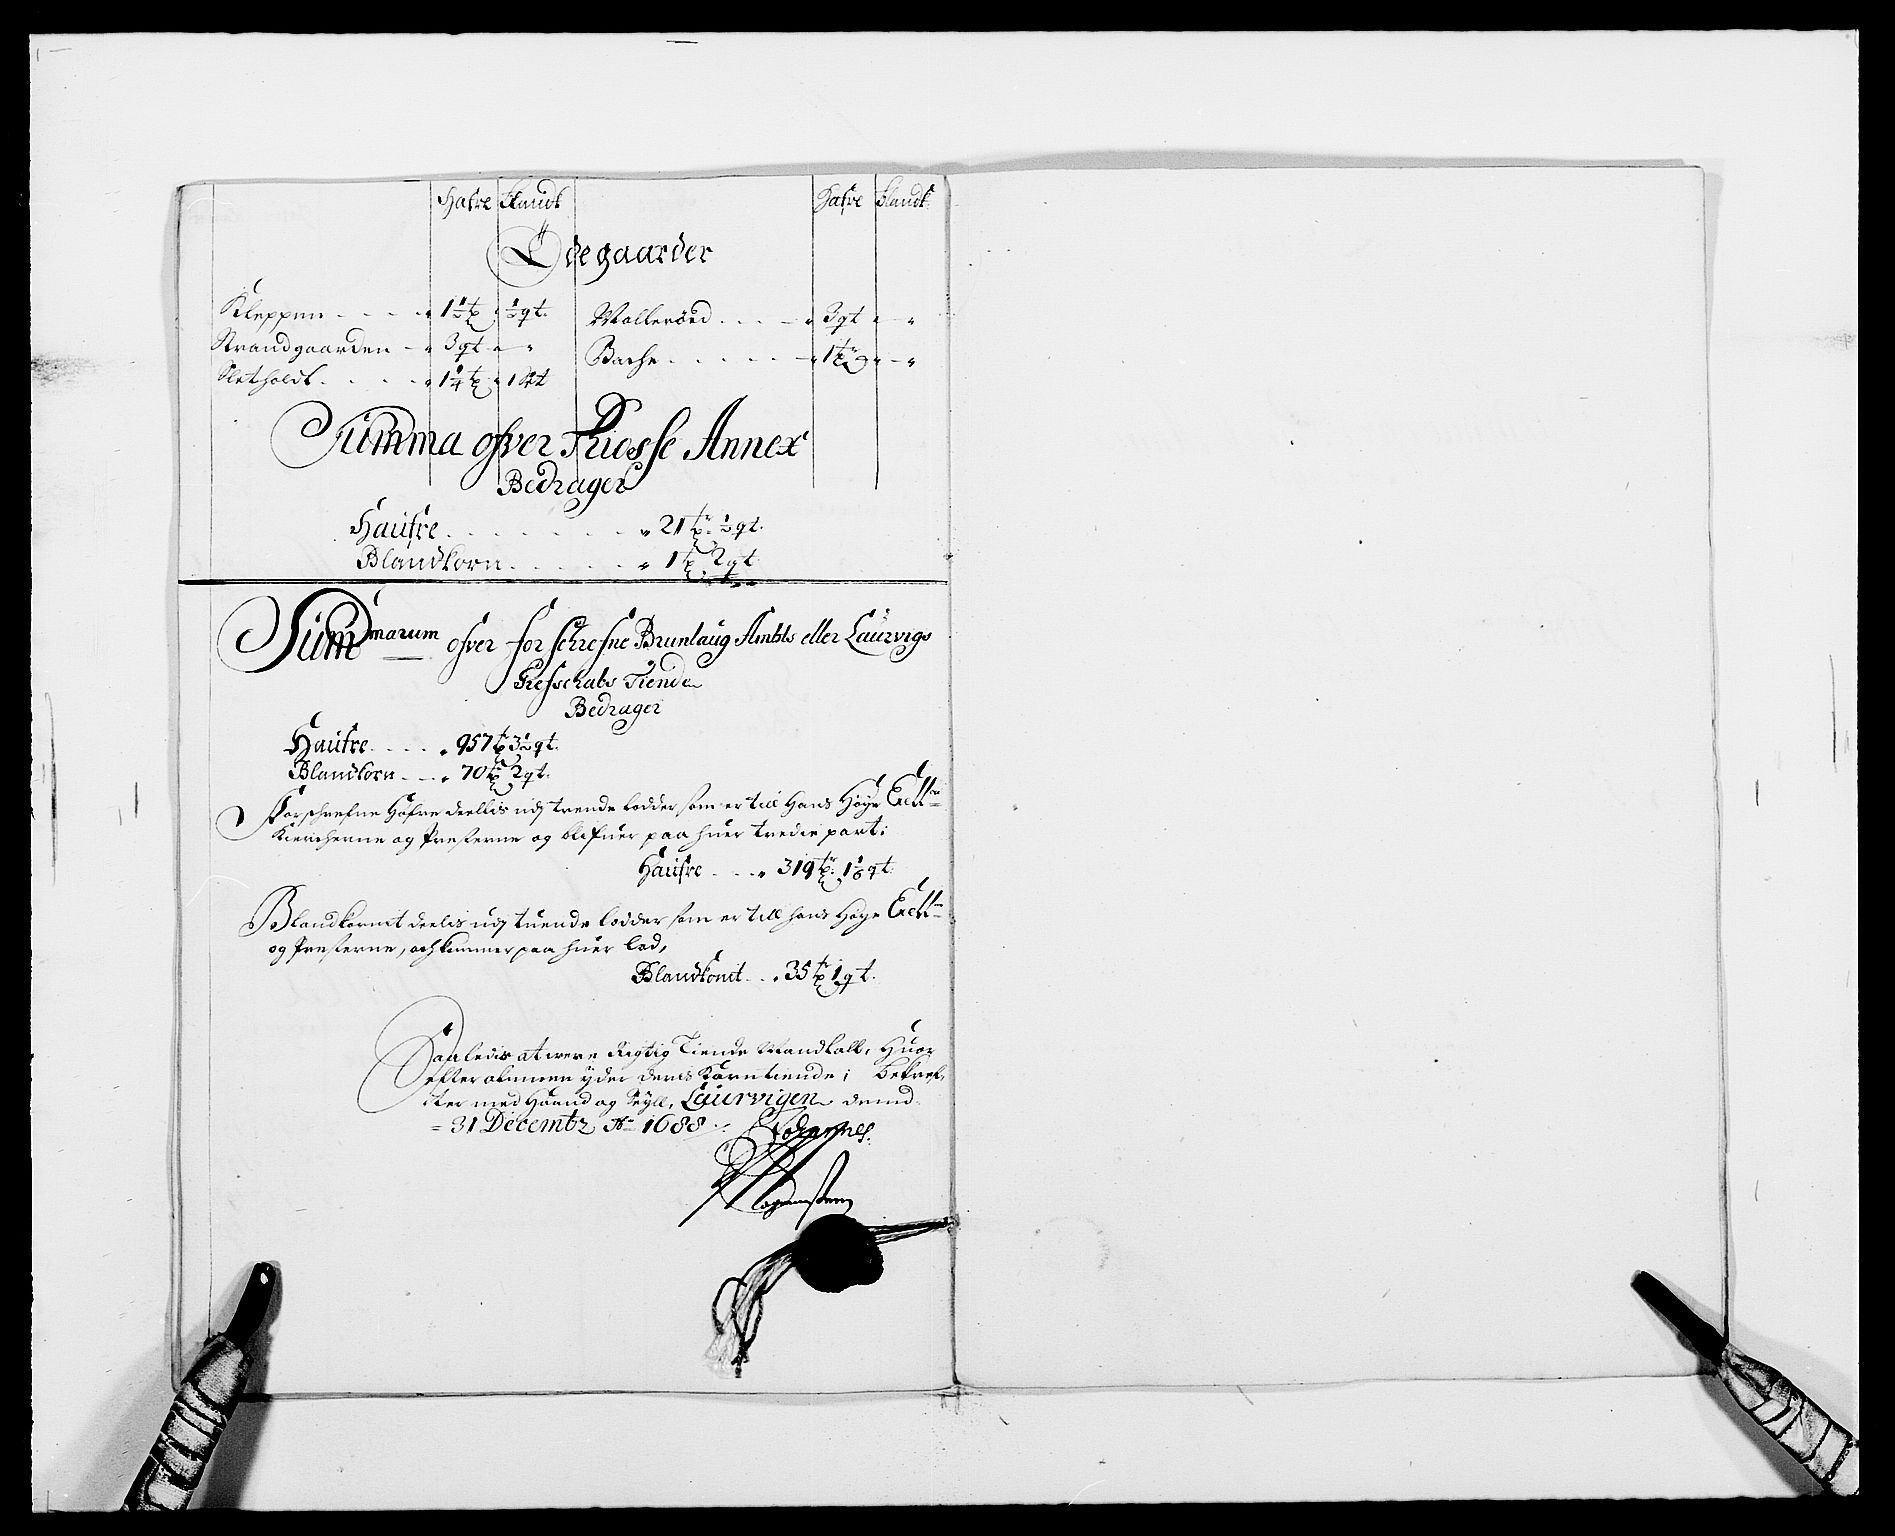 Hafre Blandk Hafre Blandk
Ødegaarder
Kleppen - - - - " 1½ tr ½ qt. Wallerød . . . - " 3 qt " - "
Strandgaarden - " 3 qt " - " Backe . . . . . . - " 1 tr " - "
Sletholdt . . . . " 1¼ tr " 1
Summa ofver Annex
Bedrager
Haufre . . . . . . . " 21 tr ½ qt.
Blandkorn . . . . . " 1 tr 2 qt
Summarum ofver forschrefne Brunlaug Ambts eller Laurvigs
Grefschabs Tienden
Bedrager
Haufre . . . . " 957 tr 3½ qt.
Blandkorn - - " 70 tr 2 qt.
Forschrefne Hafre deellis udj trende lodder som er till Hans Høye Excll
Kiercherne og Presterne og blifuer paa huer tredie part:
Haufre . . . " 319 tr 1 qt.
Blandkornet deelis udj tuende lodder som er till hans Høye Excll
og Presterne, och kommer paa huer lod,
Blandkornit . . " 35 tr 1 qt.
Saaledis at were Rigtig Tiende Mandtall, Huor
efter almuen yder deris Korntiende; bekref-
ter med Haand og Seyll, Laurvigen dend
31 Decembr Ao 1688 Johannes